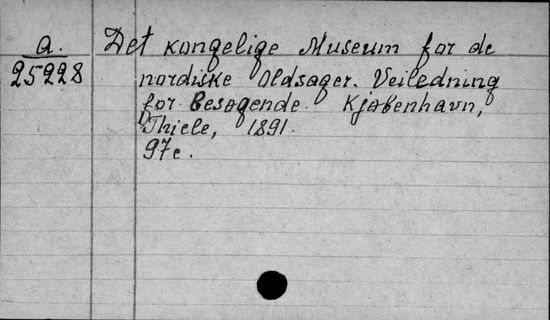 a.
25228
Det kongelige Museum for de
nordiske Oldsager. Veiledning
for Besøgende. Kjøbenhavn,
Thiele, 1891.
97c.